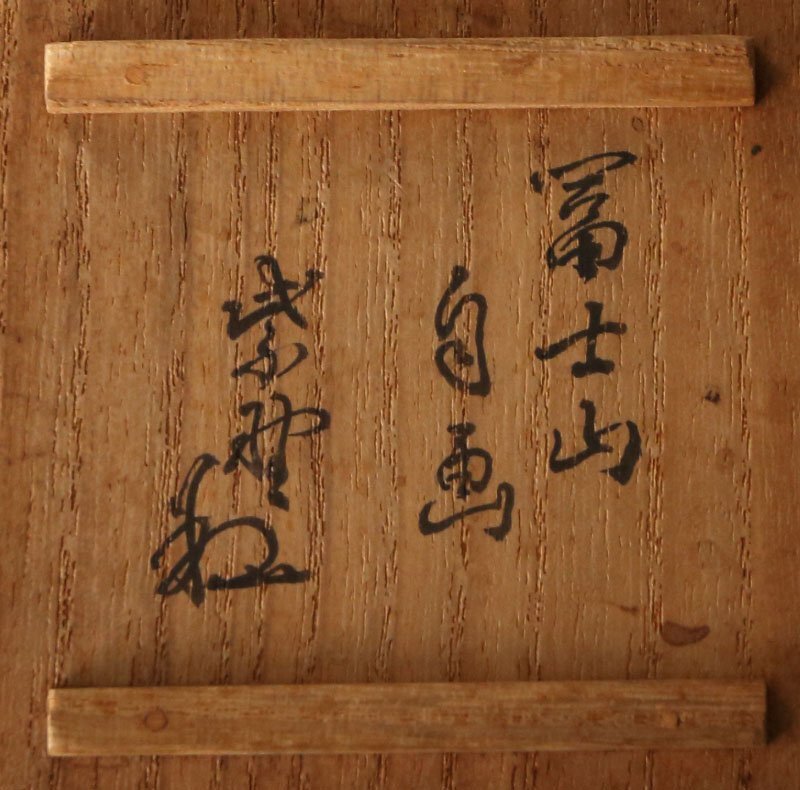 冨士山
自画
紫野